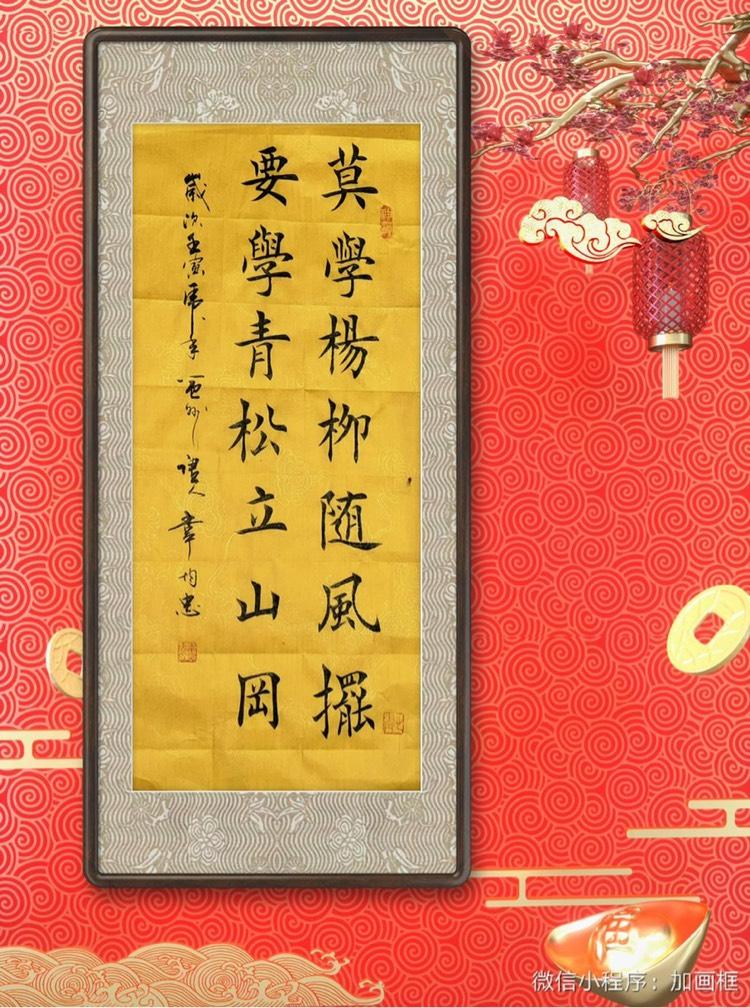 莫學楊柳随風擺
要學青松立山岡
歲次壬寅虎年 韋均忠
微信小程序：加画框